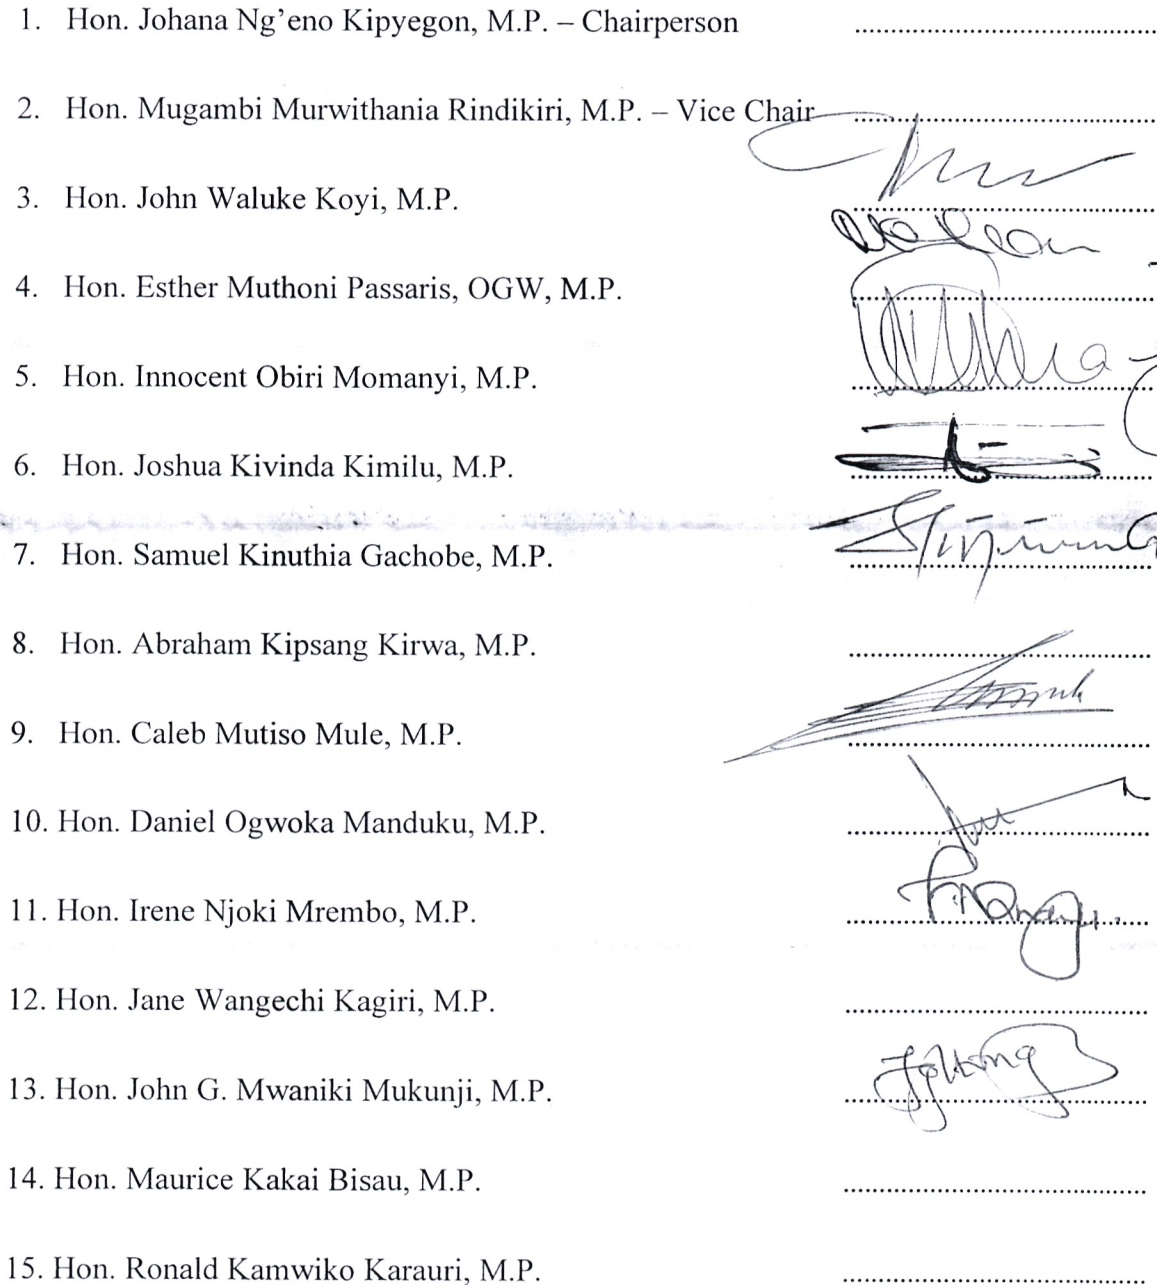 1. Hon. Johana Ng'eno Kipyegon, M.P. – Chairperson ........................................
2. Hon. Mugambi Murwithania Rindikiri, M.P. – Vice Chair ........................................
3. Hon. John Waluke Koyi, M.P. ........................................
4. Hon. Esther Muthoni Passaris, OGW, M.P. ........................................
5. Hon. Innocent Obiri Momanyi, M.P. ........................................
6. Hon. Joshua Kivinda Kimilu, M.P. ........................................
7. Hon. Samuel Kinuthia Gachobe, M.P. ........................................
8. Hon. Abraham Kipsang Kirwa, M.P. ........................................
9. Hon. Caleb Mutiso Mule, M.P. ........................................
10. Hon. Daniel Ogwoka Manduku, M.P. ........................................
11. Hon. Irene Njoki Mrembo, M.P. ........................................
12. Hon. Jane Wangechi Kagiri, M.P. ........................................
13. Hon. John G. Mwaniki Mukunji, M.P. ........................................
14. Hon. Maurice Kakai Bisau, M.P. ........................................
15. Hon. Ronald Kamwiko Karauri, M.P. ........................................